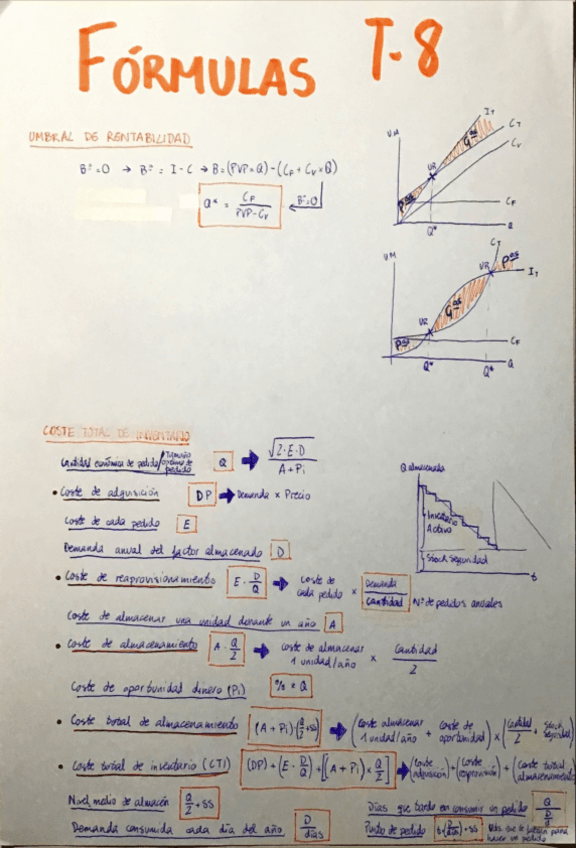 FÓRMULAS T-8
UMBRAL DE RENTABILIDAD
Bº=0 → Bº = I - C → B = (PVP × Q) - (CF + CV × Q)
Q* = CF / PVP - CV ← Bº=0
UM
IT
CT
CV
Gas
UR
Pas
CF
Q*
Q
UM
CT
Pas
UR
IT
Gas
UR
Pas
CF
Q*
Q*
Q
COSTE TOTAL DE INVENTARIO
Cantidad económica de pedido / Tamaño óptimo de pedido Q → √2·E·D / A + Pi
• Coste de adquisición DP → Demanda × Precio
Coste de cada pedido E
Demanda anual del factor almacenado D
• Coste de reaprovisionamiento E · D/Q → coste de cada pedido × Demanda / Cantidad Nº de pedidos anuales
Coste de almacenar una unidad durante un año A
• Coste de almacenamiento A · Q/2 → coste de almacenar 1 unidad/año × Cantidad / 2
Coste de oportunidad dinero (Pi) % × Q
• Coste total de almacenamiento (A + Pi) · (Q/2 + SS) → (Coste almacenar 1 unidad/año + Coste de oportunidad) × (Cantidad / 2 + Stock Seguridad)
• Coste total de inventario (CTI) (DP) + (E · D/Q) + [(A + Pi) × Q/2] → (Coste adquisición) + (Coste reaprovisión) + (Coste total almacenamiento)
Nivel medio de almacén Q/2 + SS
Demanda consumida cada día del año D / días
Días que tarda en consumir un pedido
Punto de pedido
Q almacenada
Inventario Activo
Stock Seguridad
t